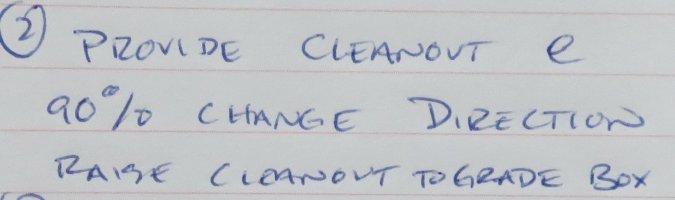 ② PROVIDE CLEANOUT @
90°/o CHANGE DIRECTION
RAISE CLEANOUT TO GRADE BOX